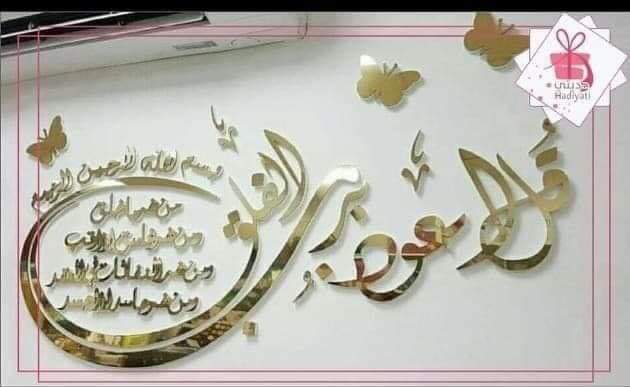 هديتي
Hadiyati
قل اعوذ برب الفلق
بسم الله الرحمن الرحيم
من شر ما خلق
ومن شر غاسق اذا وقب
ومن شر النفاثات في العقد
ومن شر حاسد اذا حسد